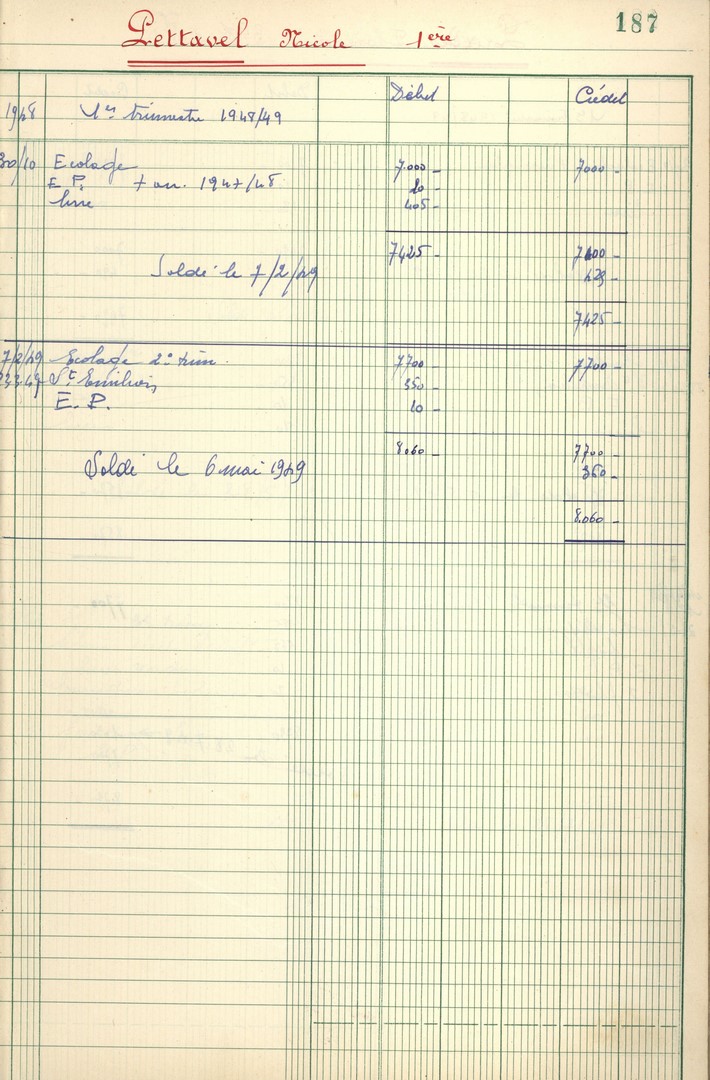 187
Pettavel Nicole 1ère
Débit Crédit
1948 1er trimestre 1948/49
30/10 Ecolage 7.000 - 7000 -
E. P. 7 an. 1947/48 20 -
livre 405 -
7425 - 7000 -
Soldé le 7/2/49 425 -
7425 -
7/2/49 Ecolage 2e trim. 7700 - 7700 -
St Emilion 350 -
E. P. 10 -
8.060 - 7700 -
Soldé le 6 mai 1949 360 -
8.060 -